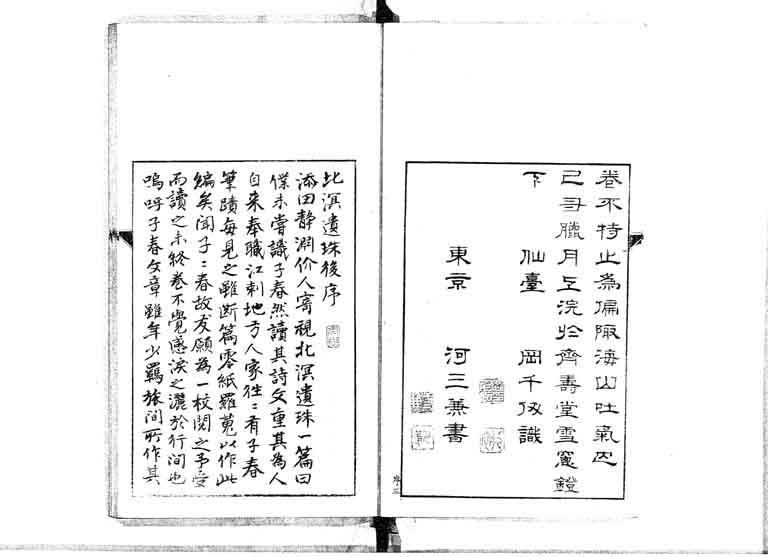 卷不特止為偏陬海山吐氣巳
己卯臘月上浣於齊壽堂雪窻鐙
下
仙臺 岡千仭識
東京 河三兼書
序三
北溟遺珠後序
添田靜淵价人寄視北溟遺珠一篇曰
僕未嘗識子春然讀其詩文重其為人
自来奉職江刺地方人家往〻有子春
筆蹟每見之雖断篇零紙羅蒐以作此
編矣聞子〻春故友願為一校閲之予受
而讀之未終卷不覺感淚之灑於行間也
嗚呼子春文章雖年少羈旅間所作其